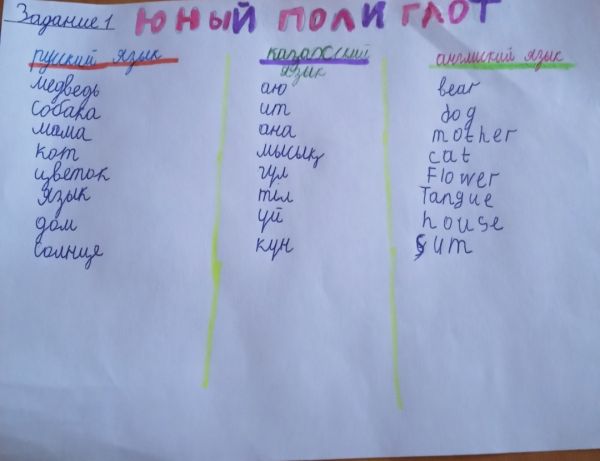 Задание 1 ЮНЫЙ ПОЛИ ГЛОТ
русский язык казахский язык англиский язык
медведь аю bear
собака ит dog
мама ана mother
кот мысық cat
цветок гүл Flower
язык тіл Tangue
дом үй house
солнце күн sum